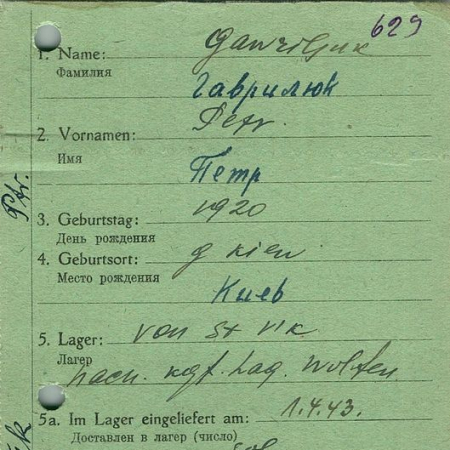 629
1. Name: Gawriljuk
Фамилия
Гаврилюк
2. Vornamen: Petr.
Имя
Петр
3. Geburtstag: 1920
День рождения
4. Geburtsort: g kiew
Место рождения
Киев
5. Lager: von St
Лагер
nach. kgf. Lag. Wolfen
5a. Im Lager eingeliefert am: 1.4.43.
Доставлен в лагер (число)